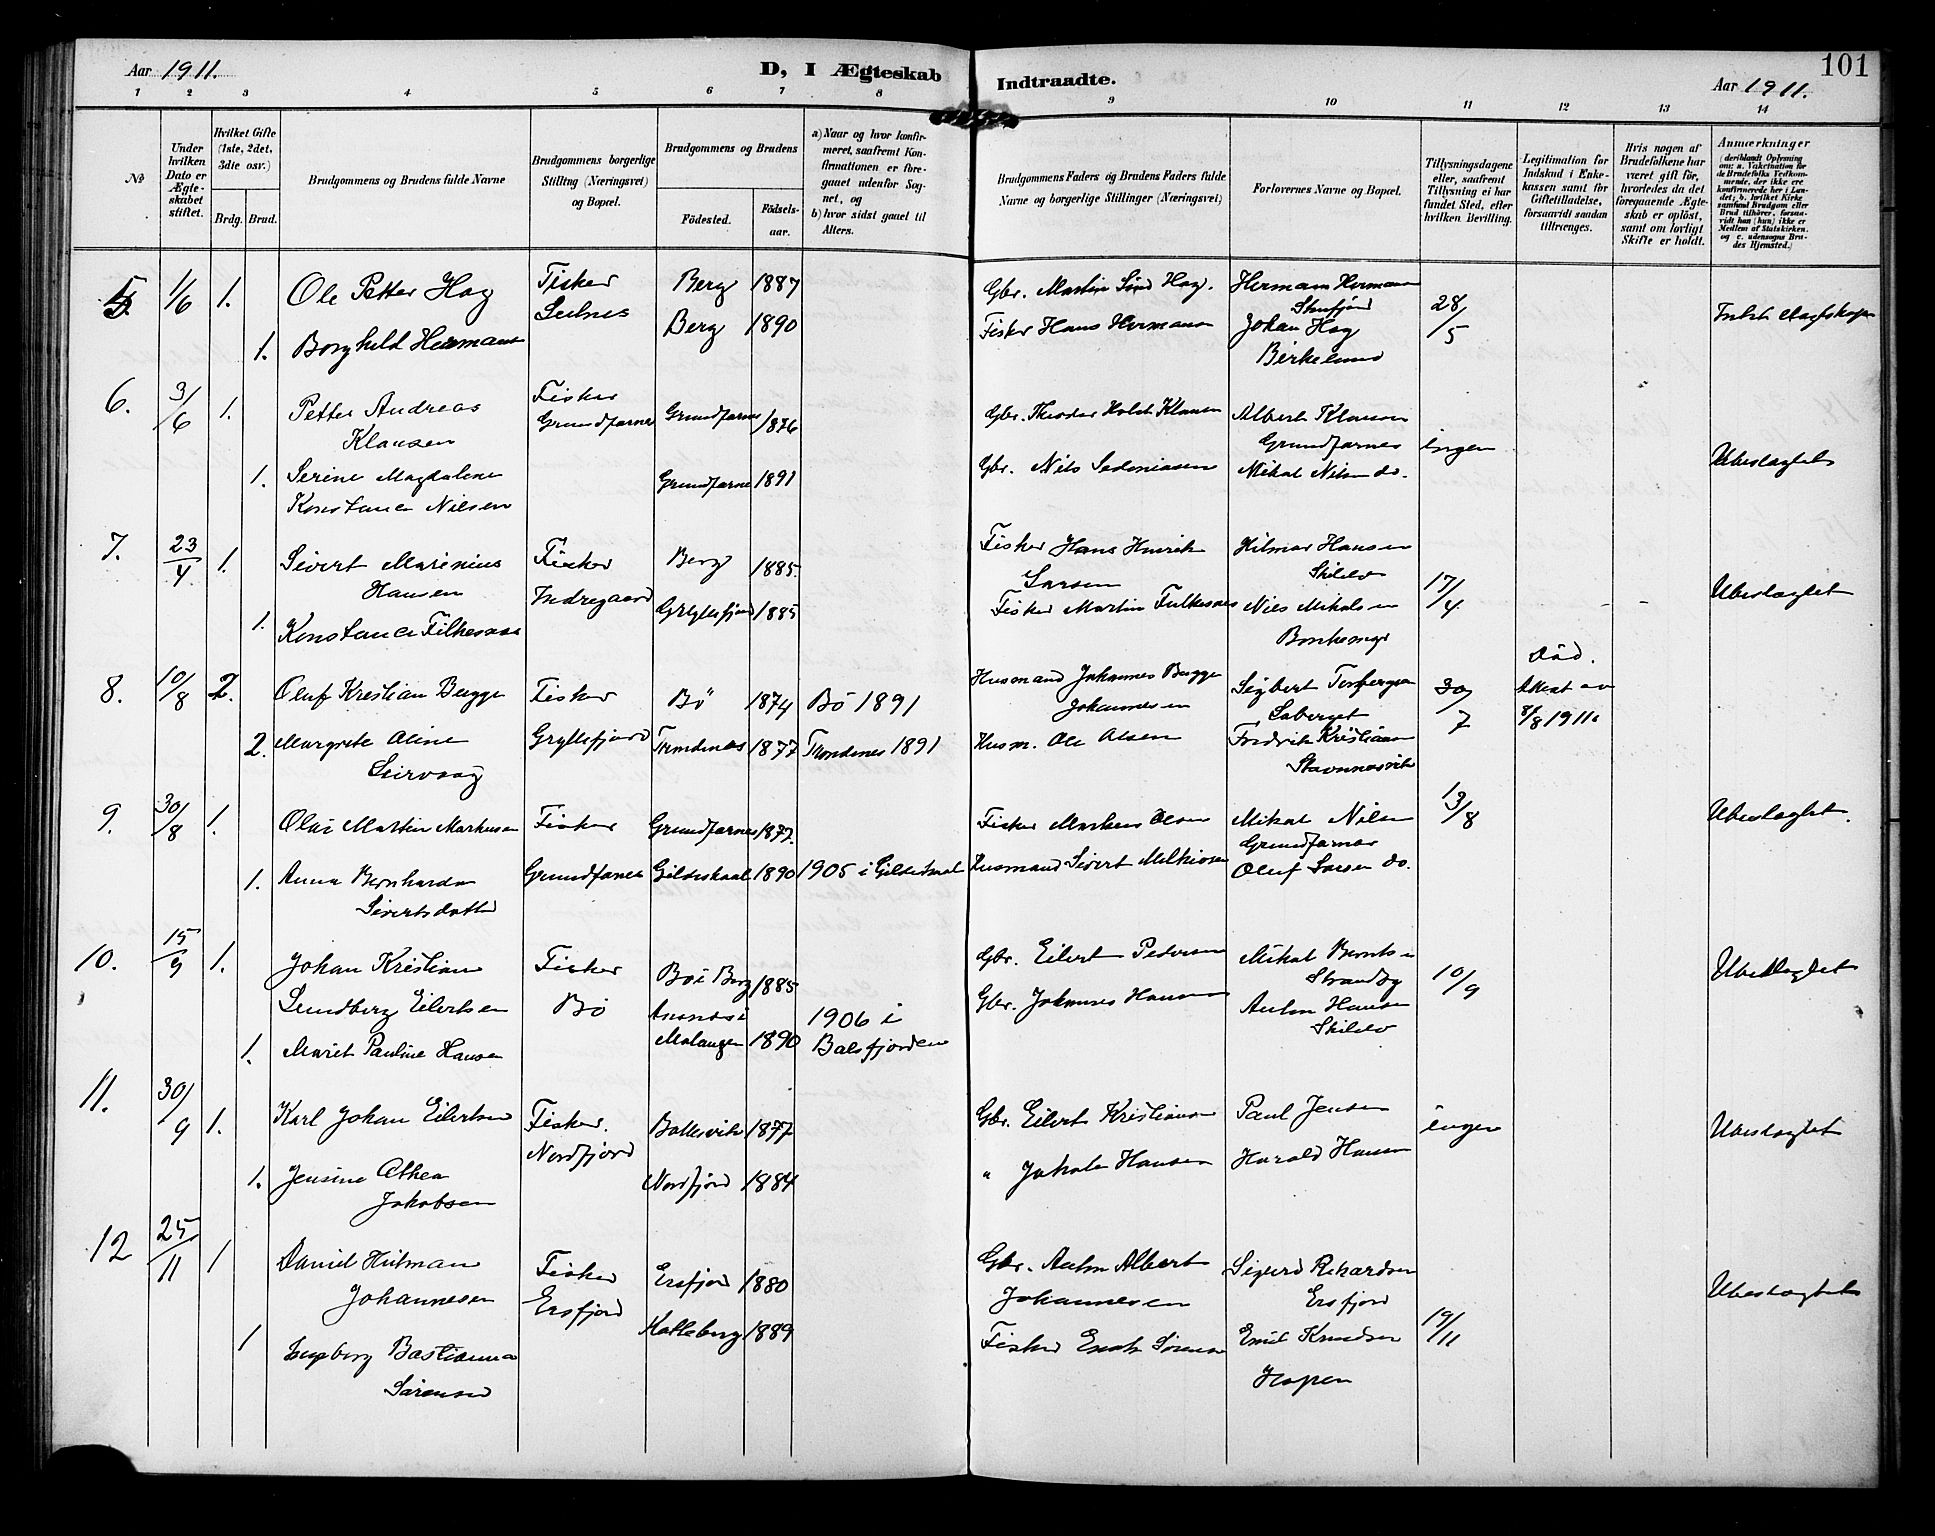 Aar 1911.
D, I Ægteskab
Indtraadte.
101
Aar 1911.
1 2 3 4 5 6 7 8 9 10 11 12 13 14
№
Under hvilken Dato er Ægteskabet stiftet.
Hvilket Gifte (1ste, 2det, 3die osv.)
Brdg. Brud.
Brudgommens og Brudens fulde Navne
Brudgommens borgerlige Stilling (Næringsvei) og Bopæl.
Brudgommens og Brudens
Fødested.
Fødselsaar.
a) Naar og hvor konfirmeret, saafremt Konfirmationen er foregaaet udenfor Sognet, og b) hvor sidst gaaet til Alters.
Brudgommens Faders og Brudens Faders fulde Navne og borgerlige Stillinger (Næringsvei)
Forlovernes Navne og Bopæl.
Tillysningsdagene eller, saafremt Tillysning ei har fundet Sted, efter hvilken Bevilling.
Legitimation for Indskud i Enkekassen samt for Giftetilladelse, forsaavidt saadan tiltrænges.
Hvis nogen af Brudefolkene har været gift før, hvorledes da det foregaaende Ægteskab er opløst, samt om lovligt Skifte er holdt.
Anmærkninger
5. 1/6 1. Ole Petter Hag Fisker Berg 1887 Gbr. Martin Hag. Herman Herman
Berg 1890 Fisker Hans Herman Johan Hag 28/5
1. Borghild Herman Birkelund
6. 3/6 1. Petter Andreas Fisker Grundfarnes 1876 Gbr. Theodor Holst Klausen Albert Klausen
Klausen Grundfarnes Grundfarnes ingen
1. Serine Magdalene Grundfarnes 1891 Gbr. Nils Sedoniasen Mikal Nilsen do. Ubeslagtet
Konstance Nilsen
7. 23/4 1. Sivert Marinius Fisker Berg 1885. Fisker Hans Henrik Hilmar Hansen
Hansen Indregaard Larsen 17/4 Ubeslagtet
1. Konstance Gryllefjord 1885 Fisker Martin Nils Mikalsen
Død.
8. 10/8 2. Oluf Kristian Bugge Fisker Bø 1874 Bø 1891 Husmand Johannes Bugge Sigbert 30/7 Attest av
Johannesen 8/8 1911.
2. Margrete Oline Gryllefjord Trondenes 1877 Trondenes 1891 Husm. Ole Olsen Fredrik Kristian
Leirvaag
9. 30/8 1. Olai Martin Markusen Fisker Grundfarnes 1877. Fisker Markus Olsen Mikal Nilsen 13/8 Ubeslagtet.
Grundfarnes
1. Anna Bernharda Grundfarnes Gildeskaal 1890 1905 i Gildeskaal Husmand Sivert Melkiorsen Oluf Larsen do.
Sivertsdatter
10. 15/9 1. Johan Kristian Fisker Bø i Berg 1885 Gbr. Eilert Pedersen Mikal Berntsen Ubeslagtet
Lundberg Eilertsen Bø Gbr. Johannes Hansen Strandby 10/9
1906 i Anton Hansen
1. Marit Pauline Hansen Malangen 1890 Balsfjorden
11. 30/9 1. Karl Johan Eilertsen Fisker. 1877 Gbr. Eilert Kristiansen Paul Jensen ingen Ubeslagtet
Nordfjord
1. Jensine Althea Nordfjord 1884 " Jakob Hansen Harald Hansen
Jakobsen
12 25/11 1 Daniel Hilman Fisker Ersfjord 1880 Gbr. Anton Albert Sigurd Rikardsen
Johannesen Ersfjord Johannesen Ersfjord Ubeslagtet
1 Ingeborg Bastianna 1889 Fisker Enok Sørensen Emil Knudsen 19/11
Sørensen Hopen